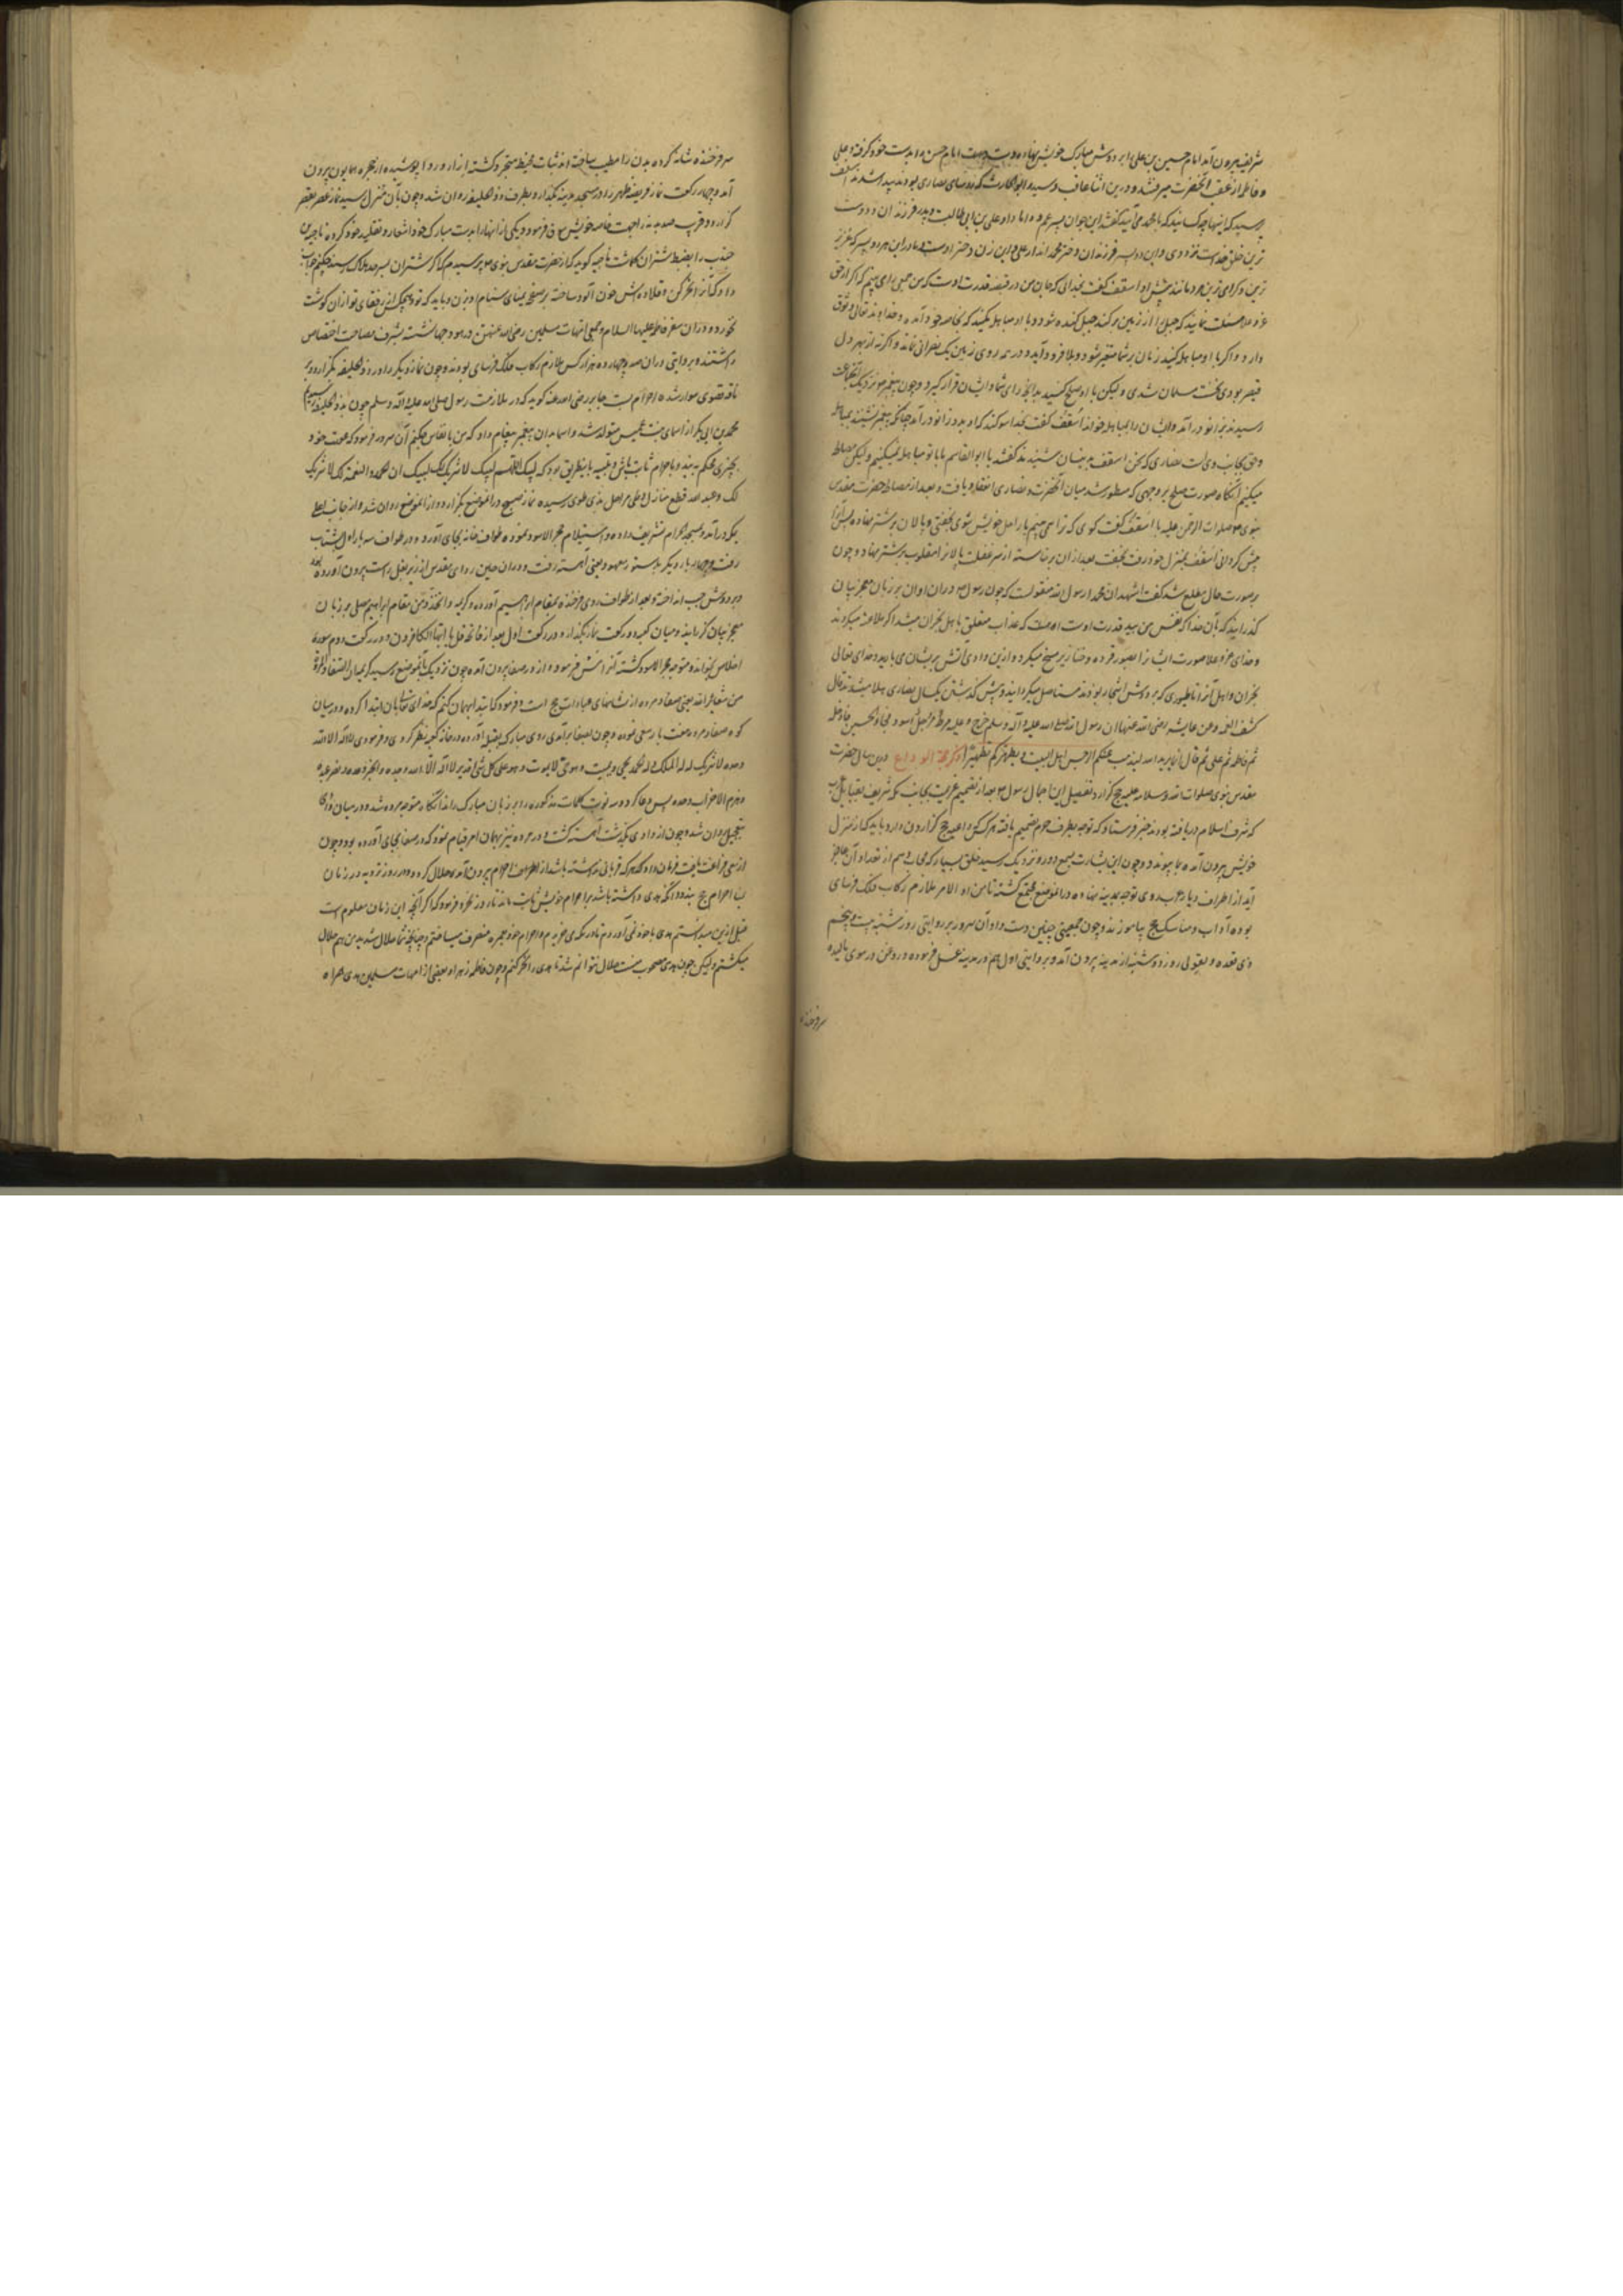 شریف بیرون آمد امام حسین بن علی را بر دوش مبارک خویش نهاده و دست امام حسن را بدست خود گرفته و علی
و فاطمه از عقب آنحضرت میرفتند و درین اثنا عاقب و سید و ابو الحارث که رؤسای نصاری بودند پیدا شدند اسقف
پرسید که اینها چه کسانند که با محمد می آیند گفتند این جوان پسر عم و داماد او علی بن ابی طالبست و پدر فرزندان و دوست
ترین خلق خداست نزد وی و این دو پسر فرزندان دختر محمد اند از علی و این زن دختر اوست و مادر این هر دو پسر که عزیز
ترین و گرامی ترین مردمانند پیش او اسقف گفت بخدائی که جان من در قبضه قدرت اوست که من جمعی را می بینم که اگر از حق
عز و علا مسئلت نمایند که جبل را از زمین بر کند جبل کنده شود و با او مباهله مکنید که بخاصه خود آمده و خداوند تعالی وثوق
دارد و اگر با او مباهله کنید زمان بر شما متغیر شود و بلا فرود آید و در همه روی زمین یک نصرانی نماند و اگر نه از بهر دل
قیصر بودی بخدمت مسلمان شدی و لیکن با او صلح کنید بدانچه رای شما و ایشان قرار گیرد و چون پیغمبر نزدیک آنجماعت
رسید بدو زانو درآمد و ایشان را بمباهله خواند اسقف گفت بخدا سوگند که او بدو زانو درآمد چنانکه پیغمبر نشیند بمباهله
و حق بجانب وی است نصاری که سخن اسقف بدینسان شنیدند گفتند یا ابو القاسم ما با تو مباهله نمیکنیم و لیکن مصالحه
میکنیم آنگاه صورت صلح بر وجهی که مسطور شد میان آنحضرت و نصاری انعقاد یافت و بعد از مصالحه حضرت مقدس
نبوی صلوات الرحمن علیه با اسقف گفت گوی که ترا می بینم باز اهل خویش شوی بخفتی و پالان بر شتر نهاده پس آنرا
پیش گردانی اسقف بمنزل خود رفت بخفت بعد از آن برخاسته از سر غفلت پالان را مقلوب بر شتر نهاد و چون
بر صورت حال مطلع شد گفت اشهد ان محمدا رسول الله منقولست که چون رسول در آن اوان بر زبان معجز بیان
گذرانید که بآن خدا که نفس من بید قدرت اوست که عذاب متعلق باهل نجران میشد اگر ملاعنه میکردند
و خدای عز و علا صورت ایشان را بصور قرده و خنازیر مسخ میکرد و ازین وادی آتش بر ایشان می بارید و خدای تعالی
نجران و اهل آنرا تا طیوری که بر دوش اشجار بودند مستاصل میگردانید و پیش گذشتن یکسال نصاری هلاک میشدند قال
کشف الغمه و عن عایشه رضی الله عنها ان رسول الله صلی الله علیه و آله و سلم خرج و علیه مرط مرجل اسود فجاء الحسین فادخله
ثم فاطمه ثم علی ثم قال انما یرید الله لیذهب عنکم الرجس اهل البیت و یطهرکم تطهیرا ذکر حجة الوداع درین سال حضرت
مقدس نبوی صلوات الله و سلامه علیه حج گزارد و تفصیل این اجمال رسول بعد از تصمیم عزیمت بجانب مکه شریف بقبایل عرب
که شرف اسلام دریافته بودند خبر فرستاد که توجه بطرف حرم تصمیم یافته هر کس داعیه حج گزاردن دارد باید که از منزل
خویش بیرون آمده بما پیوندد و چون این بشارت بسمع دور و نزدیک رسید خلق بسیار که محاسب وهم از تعداد آن عاجز
آید از اطراف دیار عرب روی توجه بمدینه نهاده در آنموضع مجتمع گشته تا من اوله الی آخره ملازم رکاب فلک فرسای
بوده آداب و مناسک حج بیاموزند و چون جمعیتی چنین دست داد آن سرور بروایتی روز شنبه بیست و پنجم
ذی قعده و بقولی روز دوشنبه از مدینه بیرون آمد و بروایتی اول هم در مدینه غسل فرموده و روغن در موی مالیده
سر فرخنده
سر فرخنده شانه کرده بدن را مطیب ساخته از ثیاب مخیط متجرد گشته ازار و ردا پوشیده از حجره همایون بیرون
آمد و چهار رکعت نماز فریضه ظهر را در مسجد مدینه بگذارد و بطرف ذو الحلیفه روان شد و چون بآن منزل رسید نماز عصر بقصر
گزارد و قرب صد بدنه را جهت خاصه خویش سوق فرمود و یکی از آنها را بدست مبارک خود اشعار و تقلید خود کرده ناجیه بن
جندب را بضبط شتران گماشت ناجیه گوید که از حضرت مقدس نبوی پرسیدم که اگر شتران بسرحد هلاک رسند چکنم جواب
داد که آنرا نحر کن و قلاده اش خون آلود ساخته بر صفحه یمنای سنام او بزن و باید که تو و هیچکس از رفقای تو از آن گوشت
نخورد و در آن سفر فاطمه علیها السلام و جمیع امهات مسلمین رضی الله عنهن در هودجها نشسته بشرف مصاحبت اختصاص
داشتند و بروایتی در آن صد و چهارده هزار کس ملازم رکاب فلک فرسای بودند و چون نماز دیگر را در ذو الحلیفه بگزارد بر
ناقه قصوی سوار شده احرام بست جابر رضی الله عنه گوید که در ملازمت رسول صلی الله علیه و آله و سلم چون بذو الحلیفه رسیدیم
محمد بن ابی بکر از اسماء بنت عمیس متولد شد و اسما بدان پیغمبر پیغام داد که من با نفاس چکنم آن سرور فرمود که عورت خود
بچیزی محکم ببند و باحرام ثابت باش و تلبیه باینطریق بود که لبیک اللهم لبیک لا شریک لک لبیک ان الحمد و النعمة لک لا شریک
لک و عبد الله قطع منازل و طی مراحل بذی طوی رسیده نماز صبح در آنموضع بگزارد و از آنموضع روان شد و از جانب اعلی
بمکه درآمد و بمسجد الحرام تشریف داده و استیلام حجر الاسود نموده طواف خانه بجای آورد و در طواف سه بار اول بشتاب
رفت و چهار بار دیگر بدستور معهود یعنی آهسته رفت و در آن حین ردای مقدس از زیر بغل راست بیرون آورده بود
و بر دوش چپ انداخته و بعد از طواف روی فرخنده بمقام ابراهیم آورده و کریمه و اتخذوا من مقام ابراهیم مصلی بر زبان
معجز بیان گذرانید و میان کعبه دو رکعت نماز بگذارد و در رکعت اول بعد از فاتحه قل یا ایها الکافرون و در رکعت دوم سوره
اخلاص بخواند و متوجه حجر الاسود گشته آنرا مس فرمود و از در صفا بیرون آمده چون نزدیک بآنموضع رسید کریمه ان الصفا و المروة
من شعائر الله یعنی صفا و مروه از نشانهای عبادات حج است و فرمود که ابتدا بهمان کنم که خدای تعالی بآن ابتدا کرده و در میان
کوه صفا و مروه هفت بار سعی نموده و چون بصفا برآمدی روی مبارک بقبله آورده در خانه کعبه نظر کردی و فرمودی لا اله الا الله
وحده لا شریک له له الملک و له الحمد یحیی و یمیت و هو حی لا یموت و هو علی کل شئ قدیر لا اله الا الله وحده و انجز وعده و نصر عبده
و هزم الاحزاب وحده پس دعا کرد و سه نوبت کلمات مذکوره را بر زبان مبارک راند آنگاه متوجه مروه شد و در میان وادی
بتعجیل روان شد و چون از وادی بگذشت آهسته گشت و در مروه نیز بهمان امر قیام نمود که در صفا بجای آورده بود و چون
از سعی فراغت یافت فرمان داد که هر که قربانی نداشته باشد از احرام بیرون آمده حلال گردد و در روز ترویه در زمان
احرام حج ببندد و آنکه هدی داشته باشد بر احرام خویش ثابت ماند تا روز نحر و فرمود که اگر آنچه این زمان معلوم است
قبل ازین میدانستم هدی با خود نمی آوردم تا در مکه می خریدم و احرام خود بعمره منصرف میساختم و چنانچه شما حلال شدید من هم حلال
میگشتم و لیکن چون هدی مصحوب منست حلال نتوانم شد تا هدی را نحر کنم و چون فاطمه زهرا و بعضی از امهات مسلمین هدی همراه